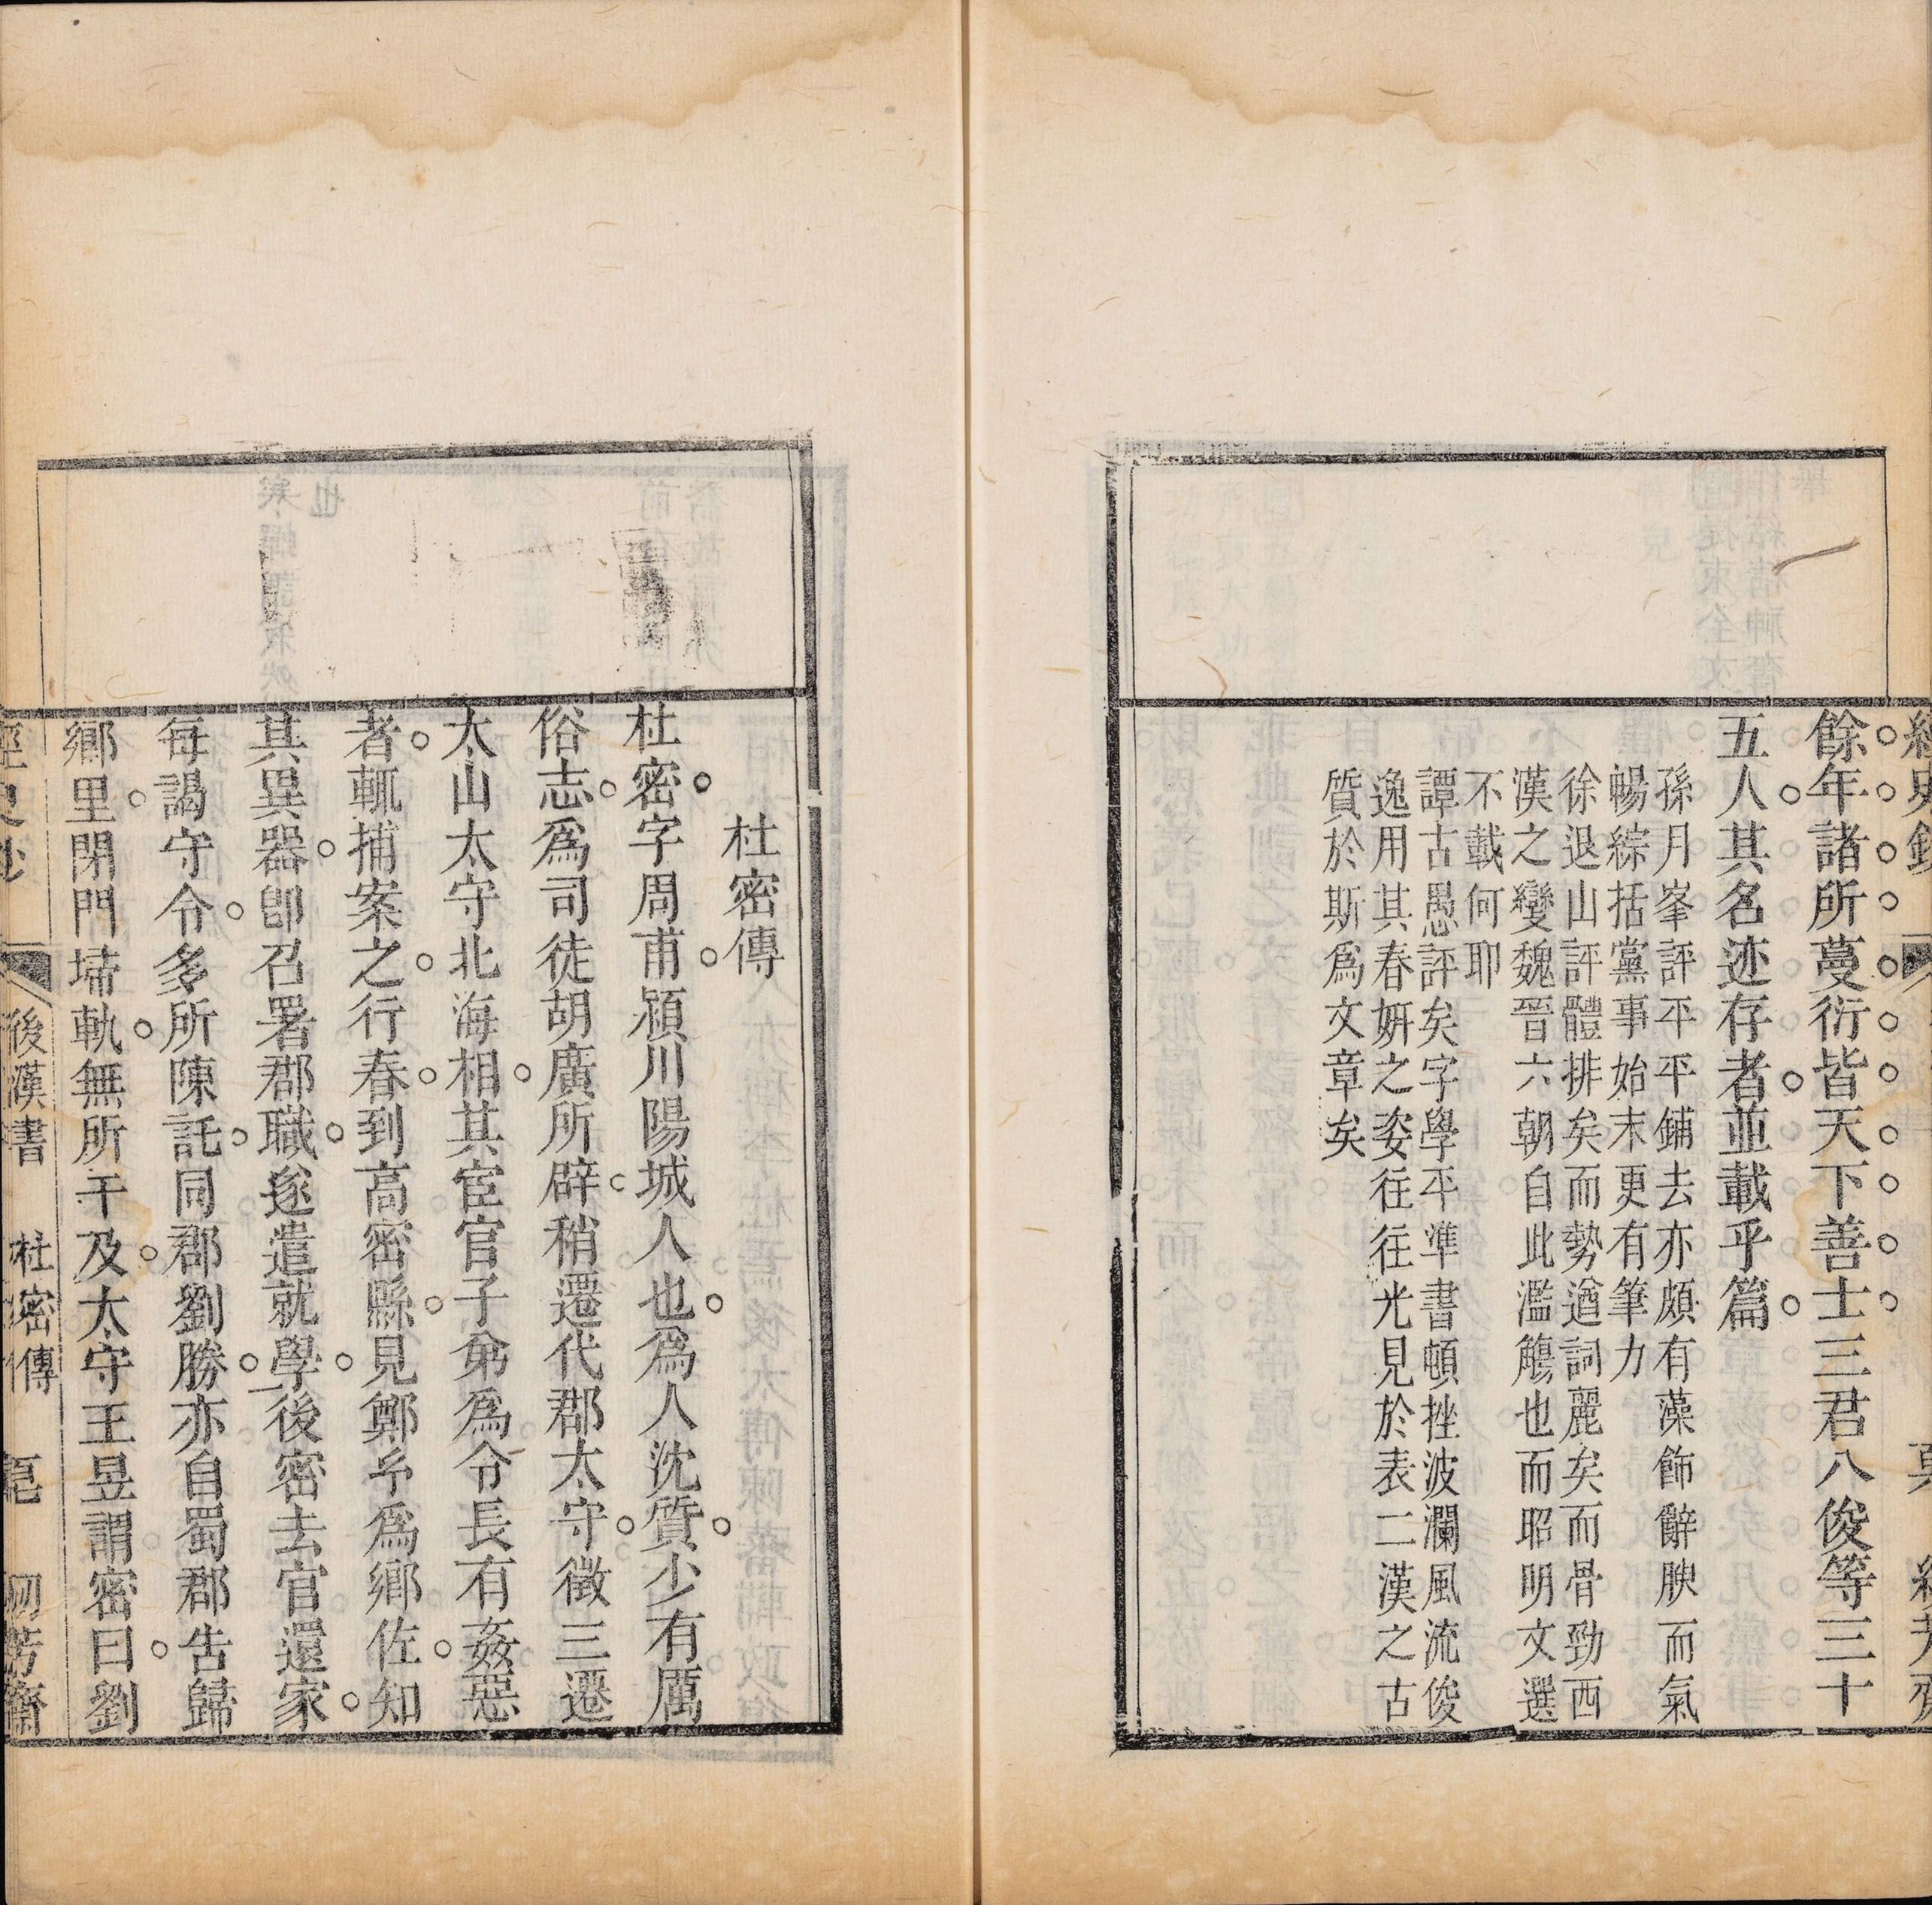 餘年諸所蔓衍皆天下善士三君八俊等三十
五人其名迹存者並載乎篇
孫月峯評平平鋪去亦頗有藻飾辭腴而氣
暢綜括黨事始末更有筆力
徐退山評體排矣而勢遒詞麗矣而骨勁西
漢之變魏晉六朝自此濫觴也而昭明文選
不載何耶
譚古愚評矣字學平準書頓挫波瀾風流俊
逸用其春妍之姿往往光見於表二漢之古
質於斯爲文章矣
杜密傳
杜密字周甫潁川陽城人也爲人沈質少有厲
俗志爲司徒胡廣所辟稍遷代郡太守徵三遷
太山太守北海相其宦官子弟爲令長有姦惡
者輒捕案之行春到高密縣見鄭玄爲鄉佐知
其異器卽召署郡職遂遣就學後密去官還家
每謁守令多所陳託同郡劉勝亦自蜀郡告歸
鄉里閉門埽軌無所干及太守王昱謂密曰劉
後漢書 杜密傳